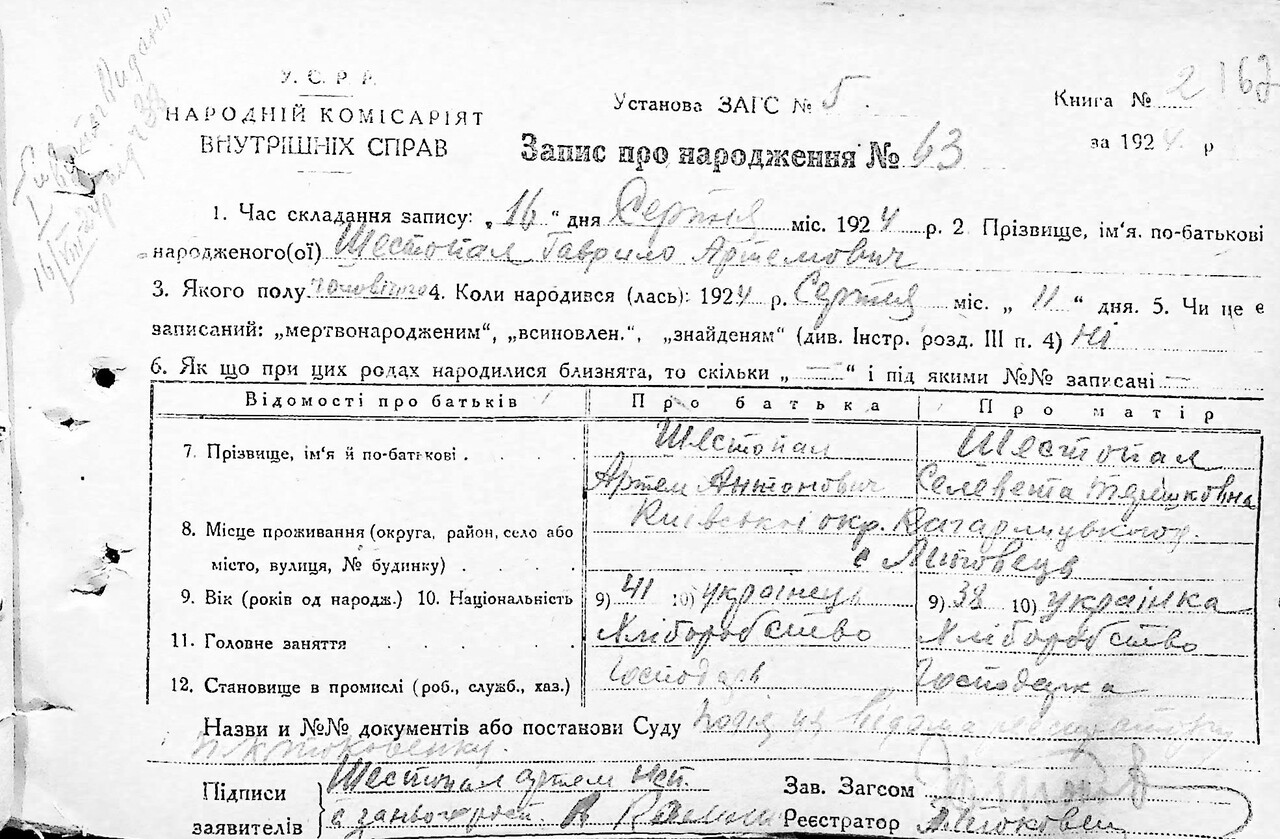 У. С. Р. Р.
НАРОДНІЙ КОМІСАРІЯТ
ВНУТРІШНІХ СПРАВ
Установа ЗАГС № 5.
Книга № 2
за 1924 р
Запис про народження № 63
1. Час складання запису: „16“ дня Серпня міс. 1924 р. 2 Прізвище, ім'я. по-батькові
народженого(ої) Шестопал Гаврило Артемович
3. Якого полу чоловічого 4. Коли народився (лась): 1924 р. Серпня міс. „11“ дня. 5. Чи це є
записаний: „мертвонародженим“, „всиновлен.", „знайденям“ (див. Інстр. розд. III п. 4) Ні
6. Як що при цих родах народилися близнята, то скільки „—“ і під якими №№ записані —
Відомості про батьків Про батька Про матір
7. Прізвище, ім'я й по-батькові . Шестопал Шестопал
Артем Антонович Селевета Терешковна
8. Місце проживання (округа, район, село або Київської окр. Кагарлицького
місто, вулиця, № будинку) с
9. Вік (років од народж.) 10. Національність 9) 41 10) українець 9) 38 10) українка
11. Головне заняття Хліборобство Хліборобство
12. Становище в промислі (роб., служб., хаз.) Господарь Господарка
Назви и №№ документів або постанови Суду
Підписи Шестопал Артем
заявителів
Зав. Загсом
Реєстратор